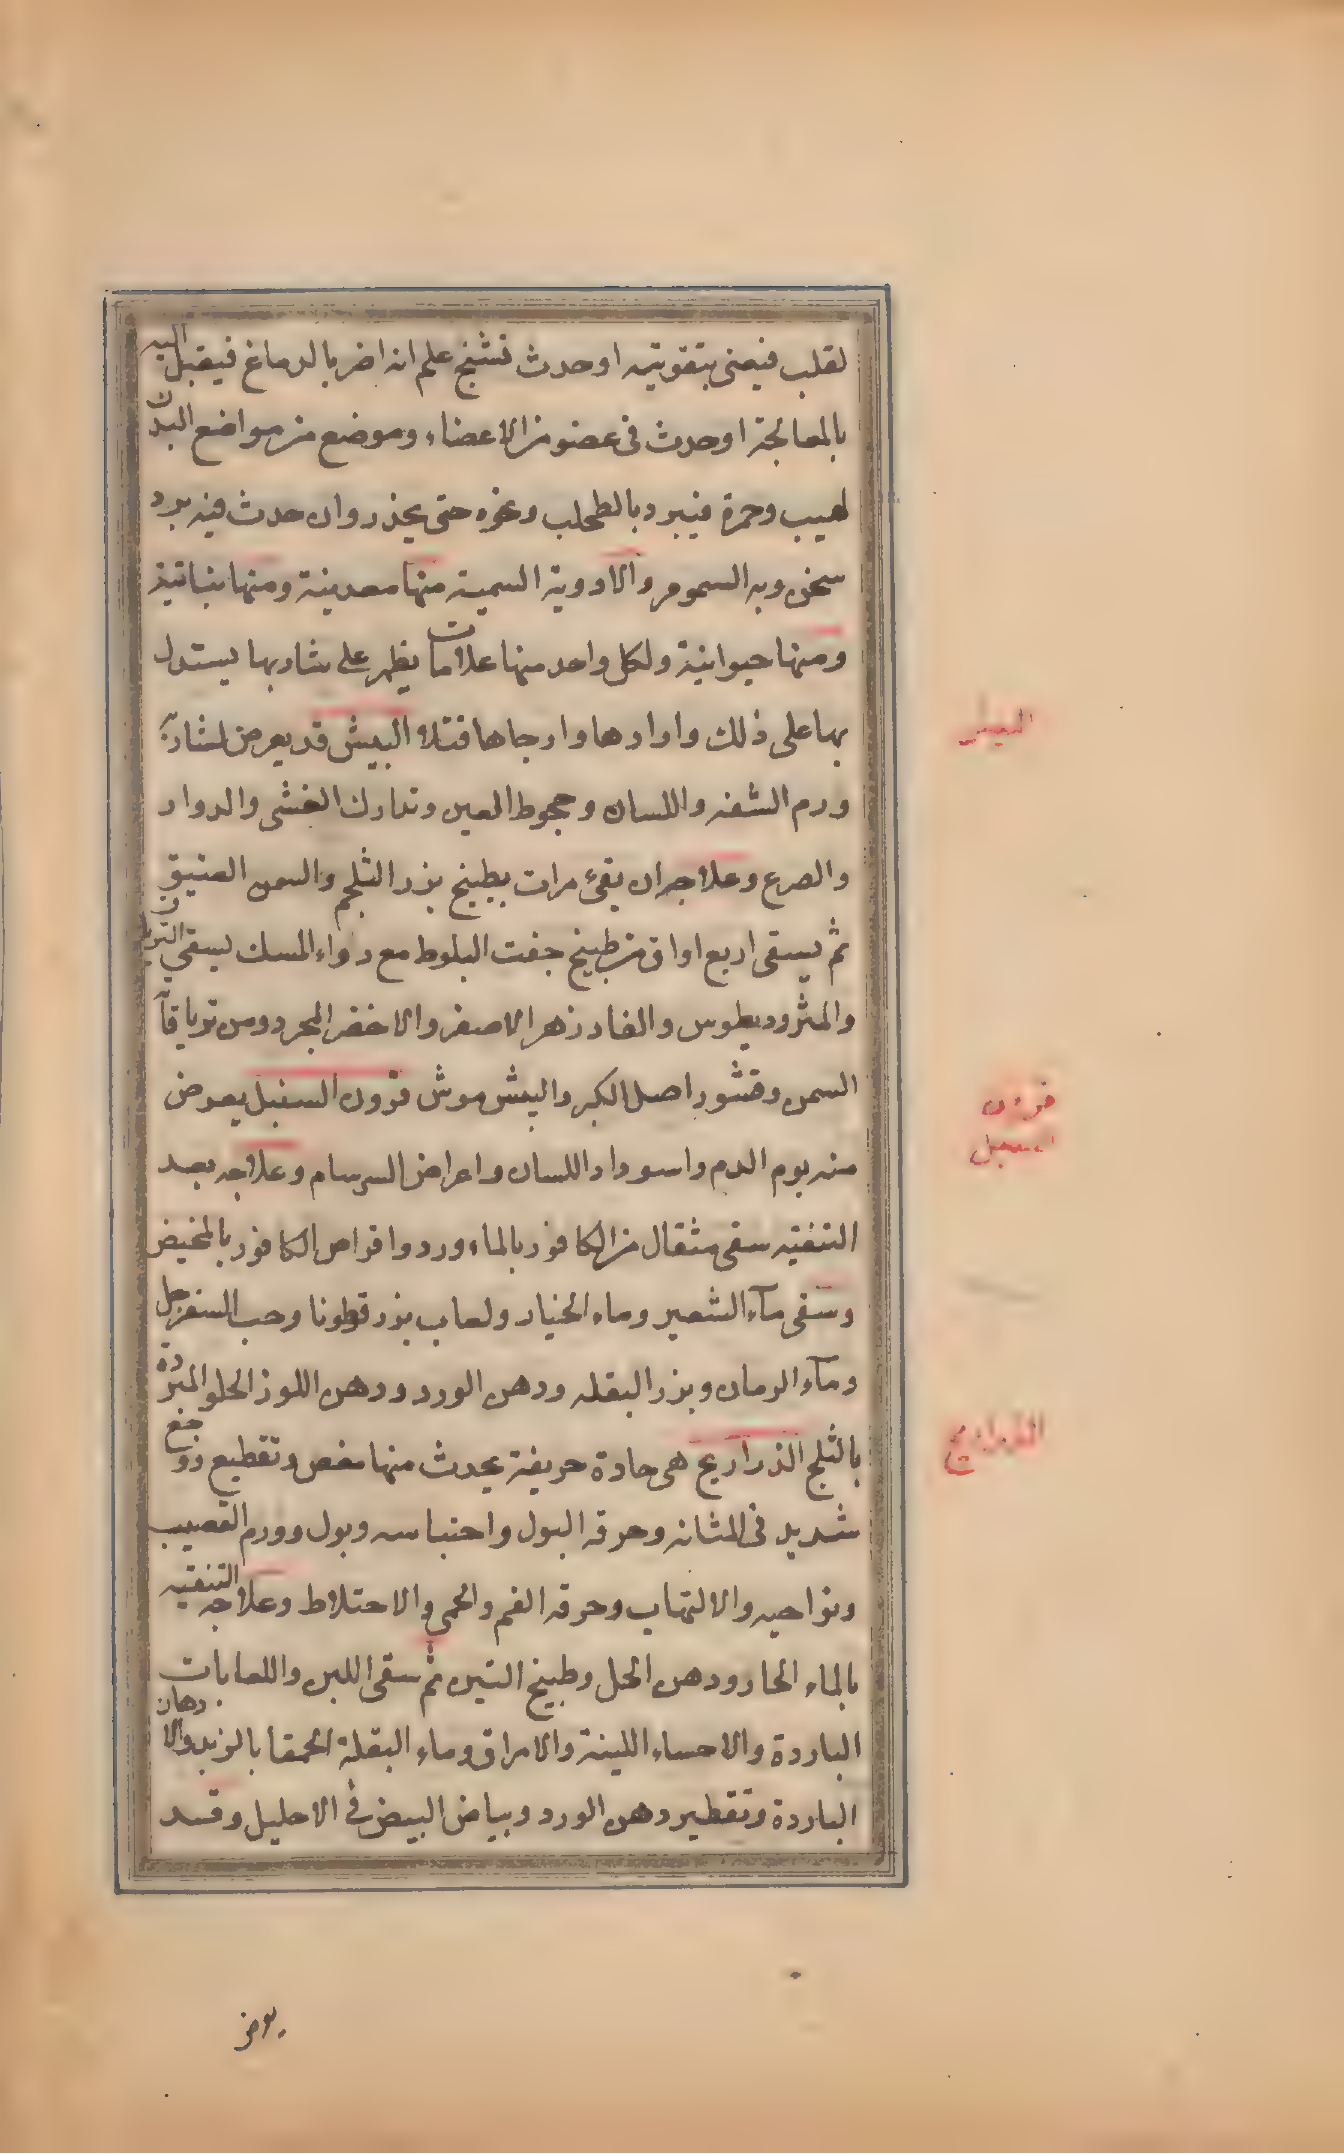 لقلب فيعنى بتقويته او حدث تشنج علم انه اضر بالدماغ فيقبل اليه
بالمعالجة او حدث فى عضو من الاعضاء وموضع من مواضع البدن
لهيب وحمرة فيبرد بالطحلب وغيره حتى يخدر وان حدث فيه برد
سخن وبه السموم والادوية السمية منها معدنية ومنها نباتية
ومنها حيوانية ولكل واحد منها علامات يظهر على شاربها يستدل
بها على ذلك واردها وارجاها قتلا البيش قد يعرض لشاربه
ورم الشفه واللسان وجحوظ العين وتدارك الغشى والدوار
والصرع وعلاجه ان يقئ مرات بطبيخ بزر الثلجم والسمن العتيق
ثم يسقى اربع اواق من طبيخ جفت البلوط مع دواء المسك يسقى
والمثروديطوس والفادزهر الاصفر والاخضر المجرد ومن ترياقاته
السمن وقشور اصل الكبر والبيش موش قرون السنبل يعرض
منه بوم الدم واسوداد اللسان واعراض السرسام وعلاجه بعد
التنقيه سقى مثقال من الكافور بالماء ورد واقراص الكافور بالمخيض
وسقى مآء الشعير وماء الخيار ولعاب بزر قطونا وحب السفرجل
ومآء الرمان وبزر البقله ودهن الورد ودهن اللوز الحلو المبردة
بالثلج الذراريح هى حادة حريفة يحدث منها مغص وتقطيع ووجع
شديد فى المثانه وحرقه البول واحتباسه وبول وورم القضيب
ونواحيه والالتهاب وحرقه الفم والحمى والاختلاط وعلاجه التنقيه
بالماء الحار ودهن الحل وطبيخ التين ثم سقى اللبن واللعابات
الباردة والاحساء اللينة والامراق وماء البقلة الحمقا بالزبد والادهان
الباردة وتقطير دهن الورد وبياض البيض فى الاحليل وقد
البيش
قرون
السنبل
الذراريح